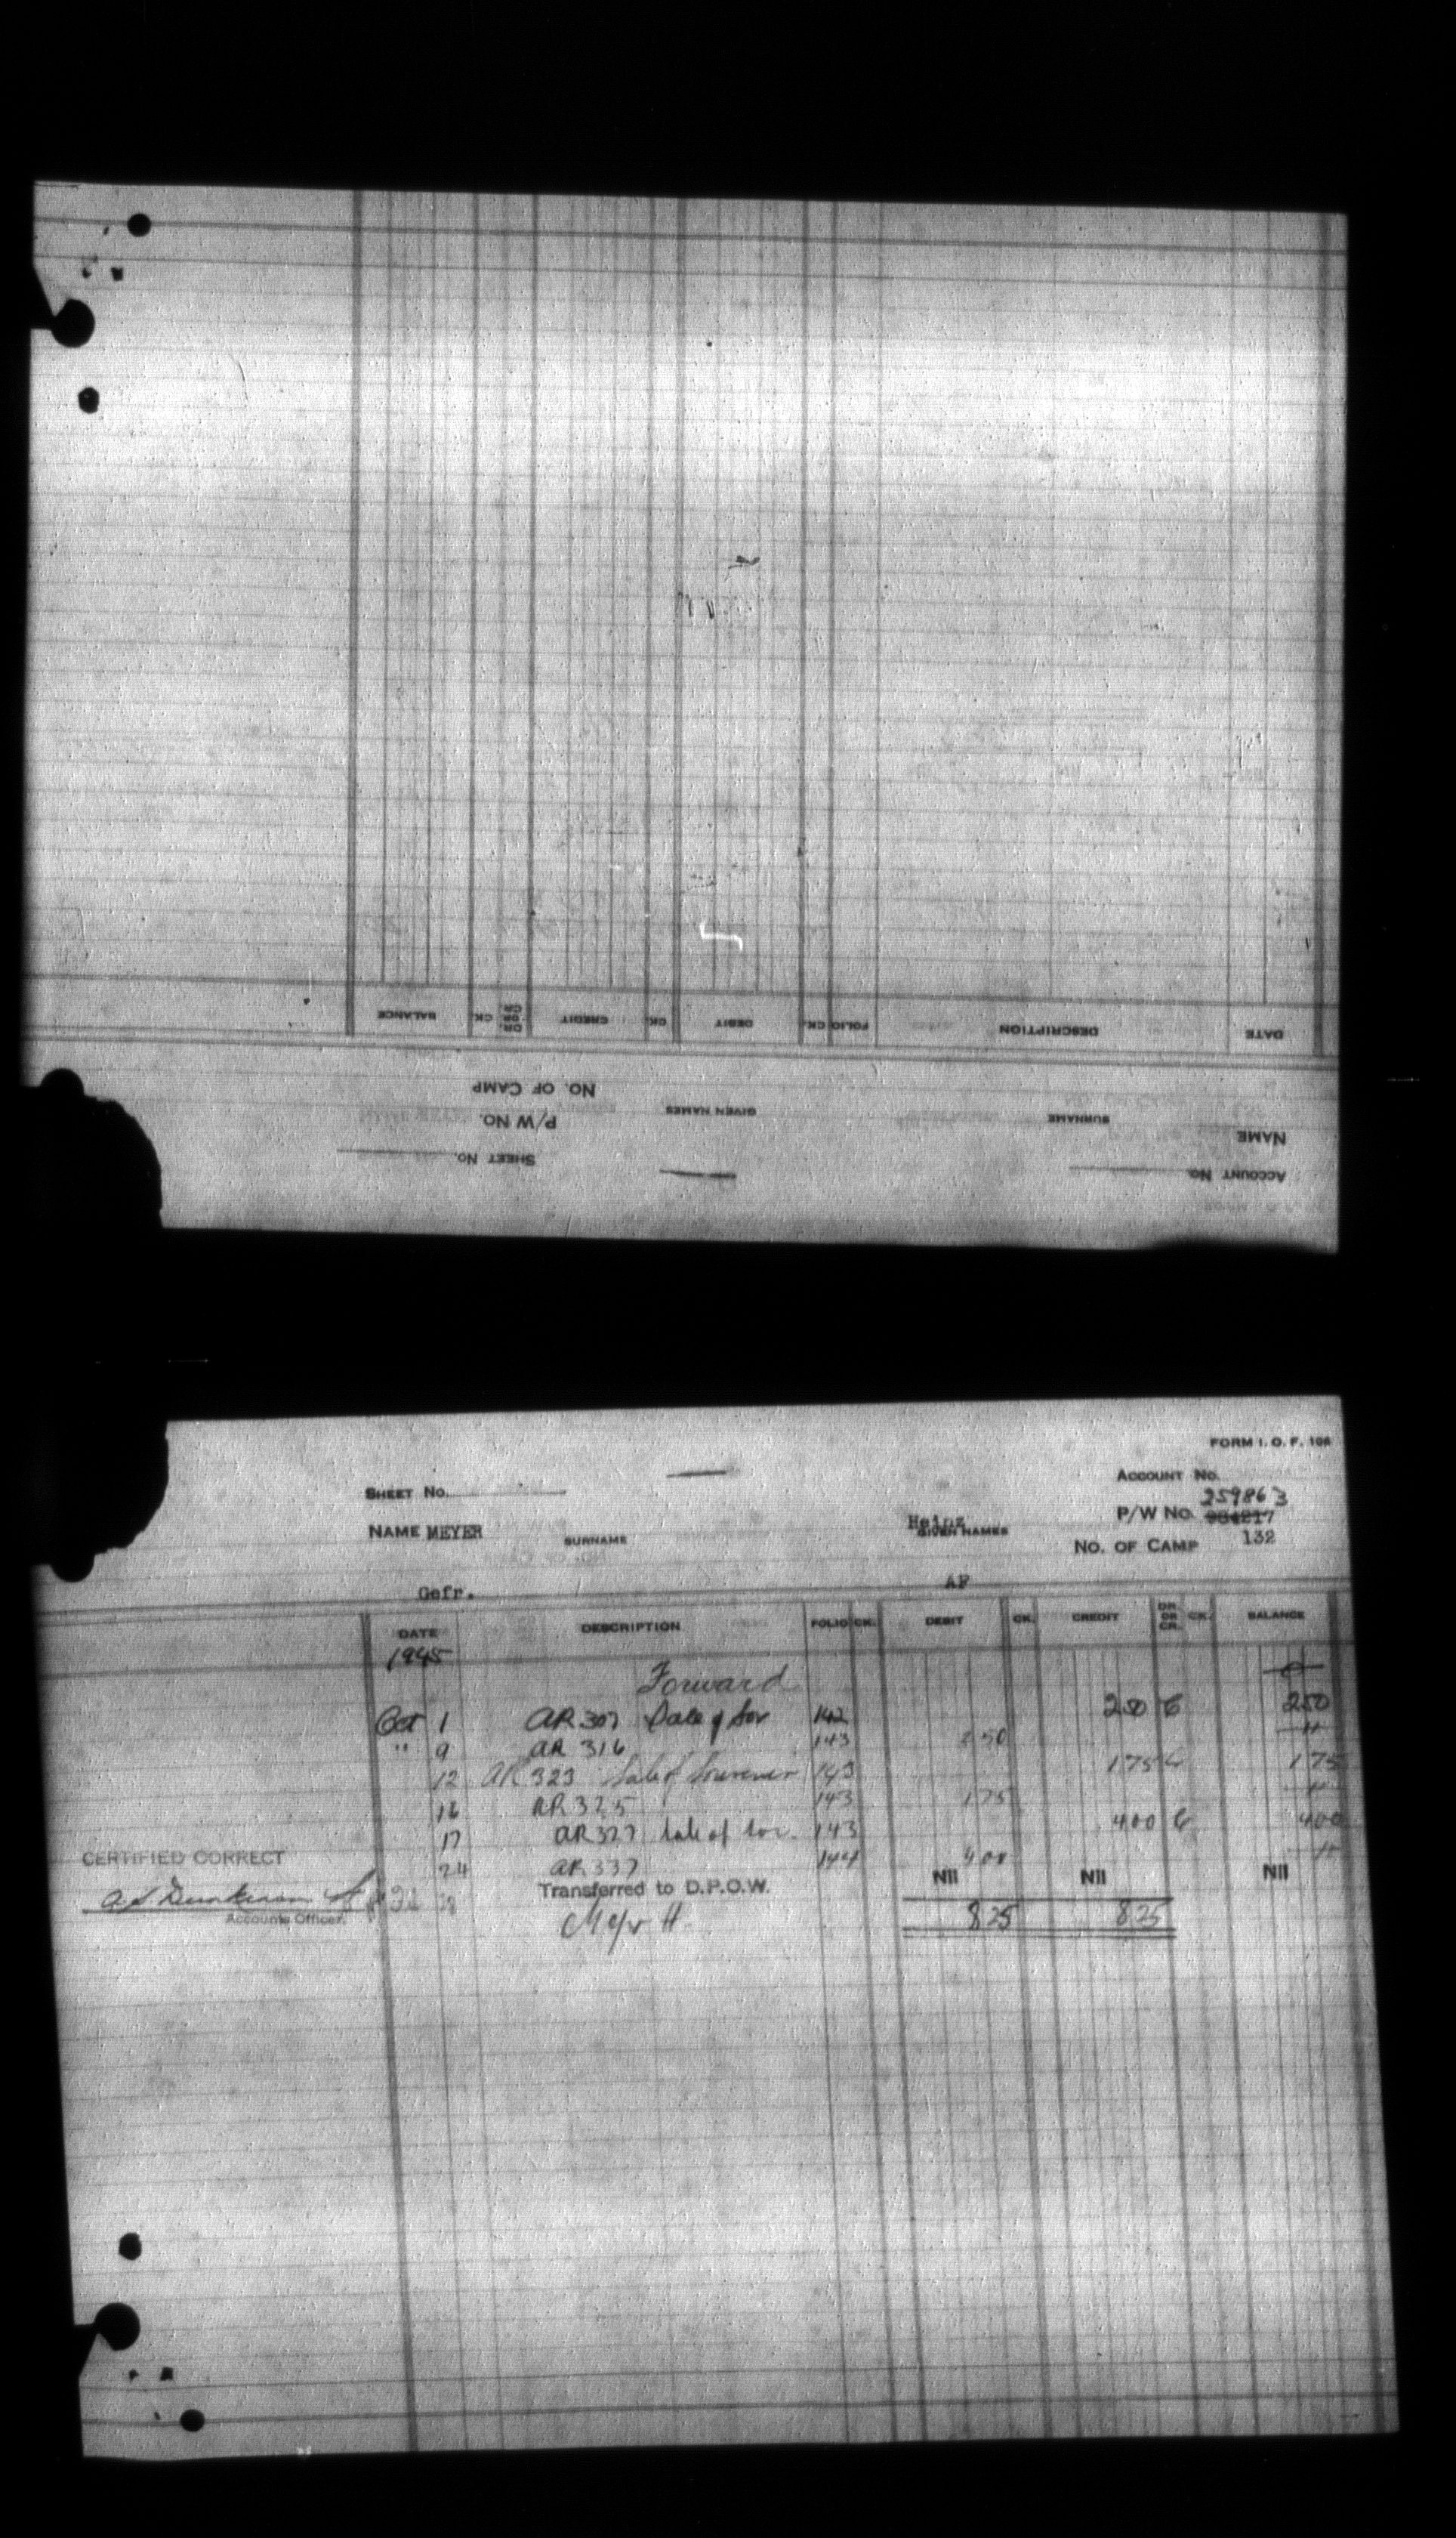 BALANCE CK. DR. OR CR. CREDIT CK. DEBIT CK. FOLIO DESCRIPTION DATE
NO. OF CAMP
P/W NO. GIVEN NAMES SURNAME NAME
SHEET NO. ACCOUNT NO.
FORM I. O. F. 106
SHEET NO. ACCOUNT NO.
259863
NAME MEYER SURNAME Heinz GIVEN NAMES P/W NO.
NO. OF CAMP 132
Gefr. AF
DATE DESCRIPTION FOLIO CK. DEBIT CK. CREDIT DR. OR CR. CK. BALANCE
1945
Forward
Oct 1 AR 307 Sale of Sov 142 2 50 C 2 50
" 9 AR 316 143 2 50
12 AR 323 Sale of Souvenir 143 1 75 C 1 75
16 AR 325 143 1 75
17 AR 327 Sale of Sov. 143 4 00 C 4 00
24 AR 337 144 4 00
CERTIFIED CORRECT
Transferred to D.P.O.W. Nil Nil Nil
Accounts Officer.
Meyer H 8 25 8 25